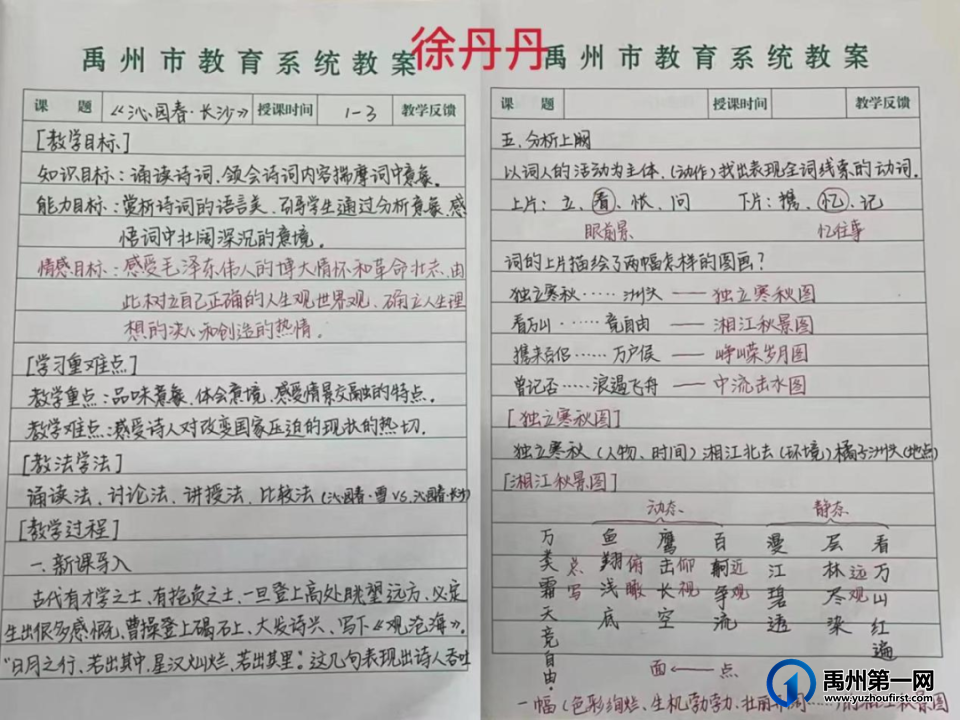 徐丹丹
禹州市教育系统教案
课题 《沁园春·长沙》 授课时间 1-3 教学反馈
[教学目标]
知识目标：诵读诗词、领会诗词内容揣摩词中意象。
能力目标：赏析诗词的语言美、引导学生通过分析意象、感
悟词中壮阔深沉的意境。
情感目标：感受毛泽东伟人的博大情怀和革命壮志、由
此树立自己正确的人生观世界观、确立人生理
想的决心和创造的热情.
[学习重难点]
教学重点：品味意象、体会意境、感受情景交融的特点.
教学难点：感受诗人对改变国家压迫的现状的热切.
[教法学法]
诵读法、讨论法、讲授法、比较法(沁园春·雪VS.沁园春·长沙)
[教学过程]
一.新课导入
古代有才学之士、有抱负之士、一旦登上高处眺望远方、必定
生出很多感慨、曹操登上碣石上、大发诗兴、写下《观沧海》.
"日月之行、若出其中、星汉灿烂、若出其里."这几句表现出诗人吞吐
禹州市教育系统教案
课题 授课时间 教学反馈
五.分析上阕
以词人的活动为主体.(动作)找出表现全词线索的动词.
上片：立、看、怅、问 下片：携、忆、记
眼前景 忆往事
词的上片描绘了两幅怎样的图画？
独立寒秋……洲头——独立寒秋图
看万山……竞自由——湘江秋景图
携来百侣……万户侯——峥嵘岁月图
曾记否……浪遏飞舟——中流击水图
[独立寒秋图]
独立寒秋(人物、时间)湘江北去(环境)橘子洲头(地点)
[湘江秋景图]
动态 静态
万 鱼 鹰 百 漫 层 看
类 翔 俯 击 仰 舸 近 江 林 远 万
霜 写 浅 瞰 长 视 争 观 碧 尽 观 山
天 底 空 流 透 染 红
竞 遍
自 面←点
由
一幅(色彩绚烂、生机勃勃、壮丽 湘江秋景图
禹州第一网
www.yuzhoufirst.com